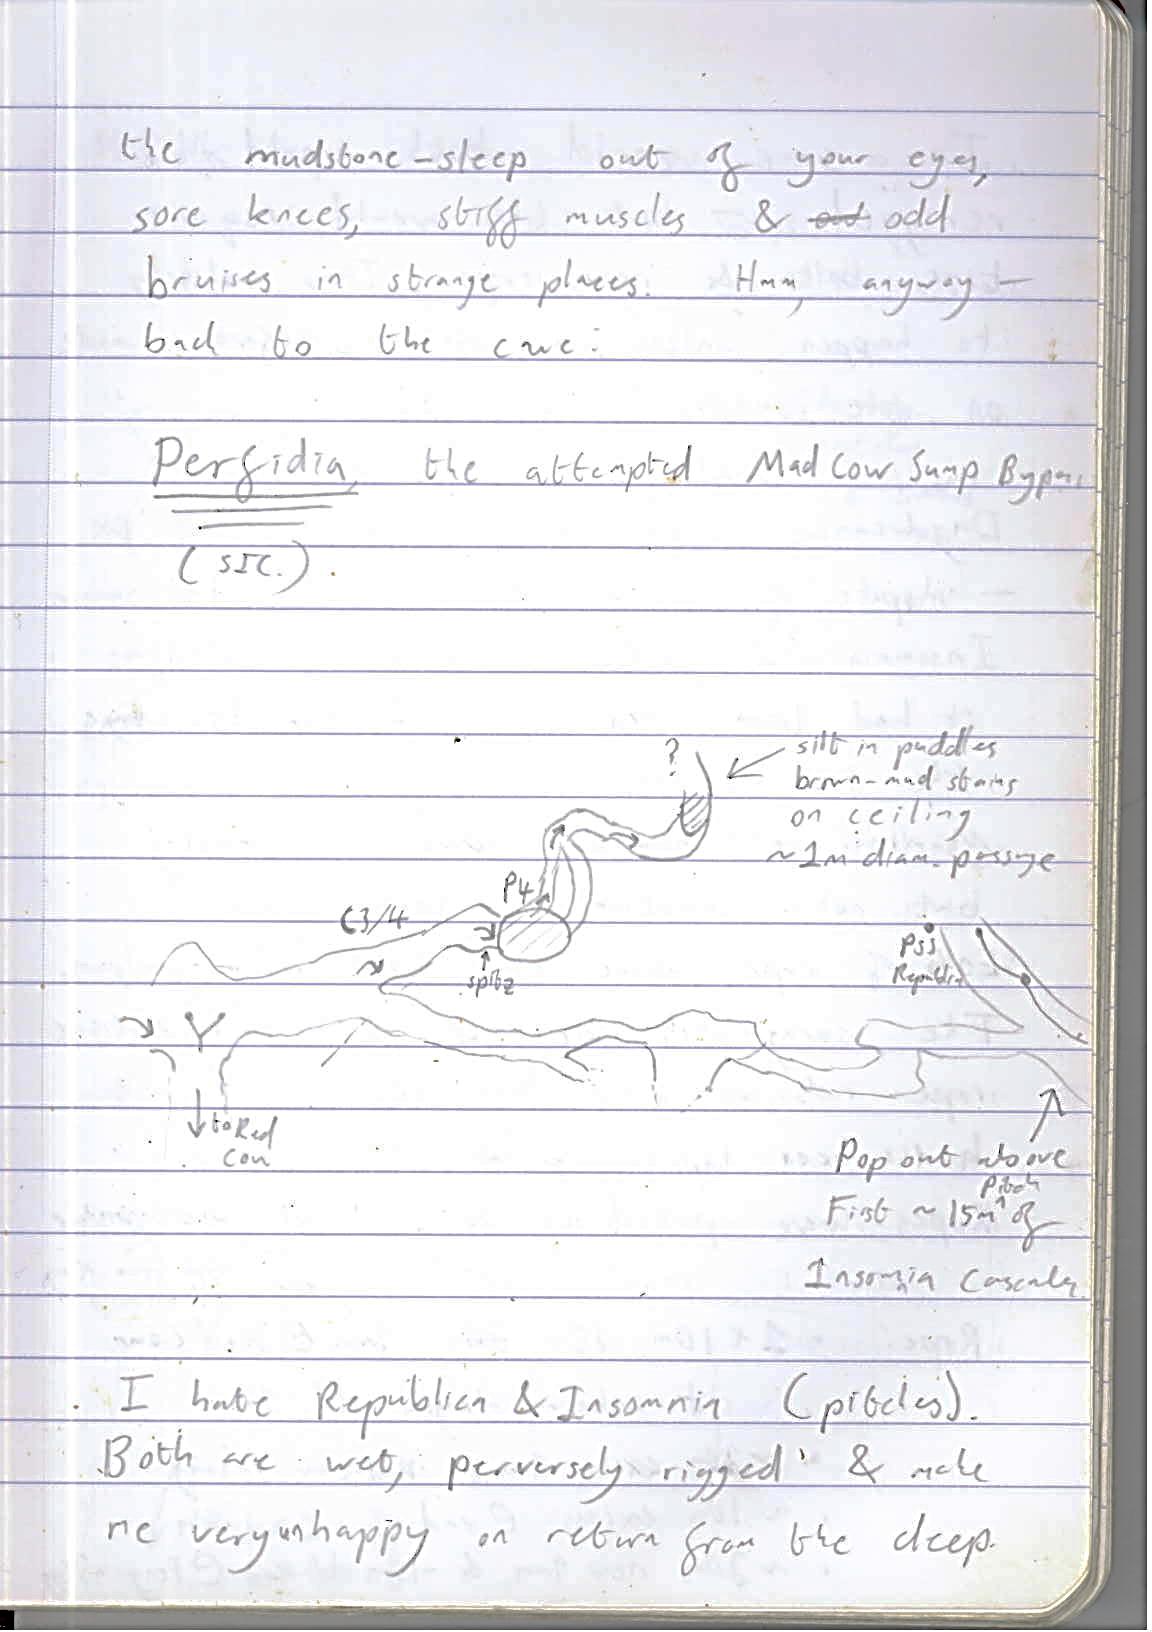 the mudstone-sleep out of your eyes,
sore knees, stiff muscles & out odd
bruises in strange places. Hmm, anyway –
back to the cave:
Perfidia, the attempted Mad Cow Sump Bypass
(SIC.).
?
silt in puddles
brown-mud stains
on ceiling
~1m diam. passage
P4
C3/4
spitz
P55
Republica
to Red
Cow
Pop out above
Pitch
First ~ 15m of
Insomnia Cascades
I hate Republica & Insomnia (pitches).
Both are wet, perversely rigged & make
me very unhappy on return from the deep.